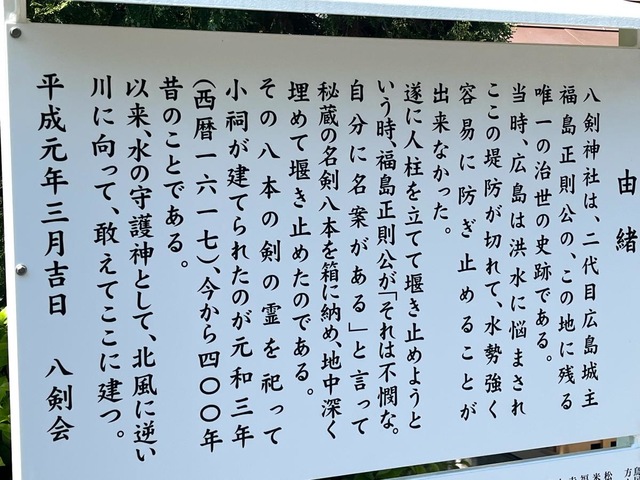 由緒
八剣神社は、二代目広島城主
福島正則公の、この地に残る
唯一の治世の史跡である。
当時、広島は洪水に悩まされ
ここの堤防が切れて、水勢強く
容易に防ぎ止めることが
出来なかった。
遂に人柱を立てて堰き止めようと
いう時、福島正則公が「それは不憫な。
自分に名案がある」と言って
秘蔵の名剣八本を箱に納め、地中深く
埋めて堰き止めたのである。
その八本の剣の霊を祀って
小祠が建てられたのが元和三年
(西暦一六一七)、今から四〇〇年
昔のことである。
以来、水の守護神として、北風に逆い
川に向って、敢えてここに建つ。
平成元年三月吉日 八剣会